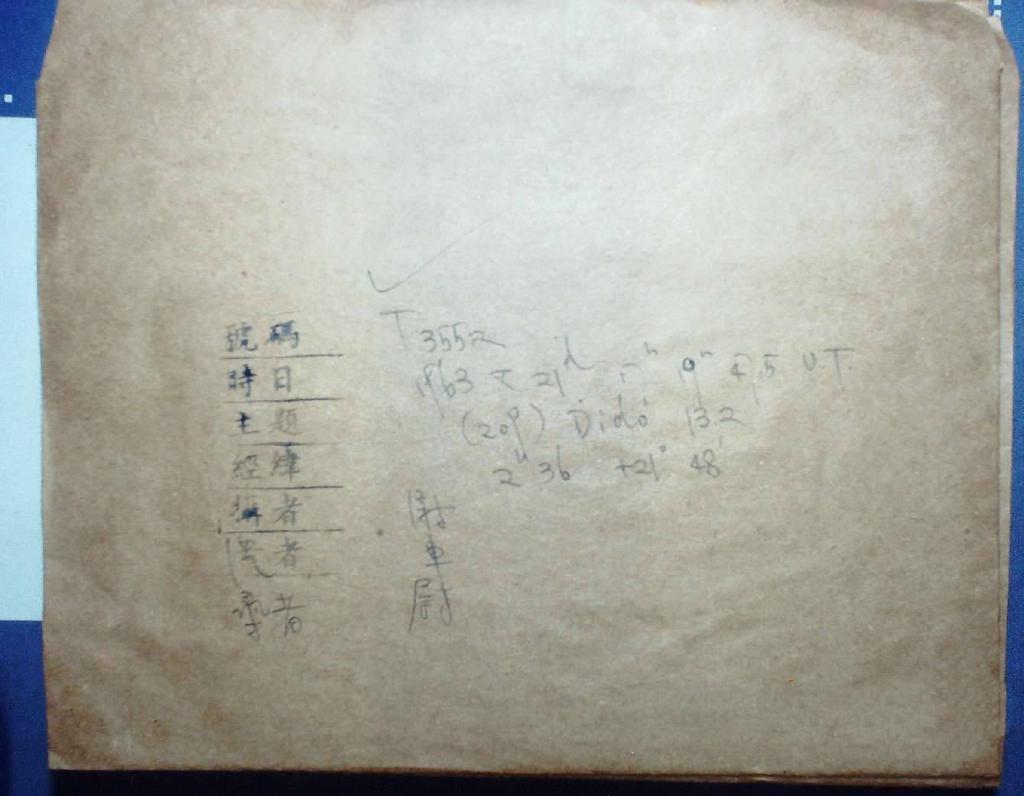 號碼 T 3552
時日 1963 X 21ᵈ 9ᵐ 4.5 U.T.
主題 (209) Dido 13.2
經緯 2ʰ 36 +21° 48'
攝者
者
者 尉